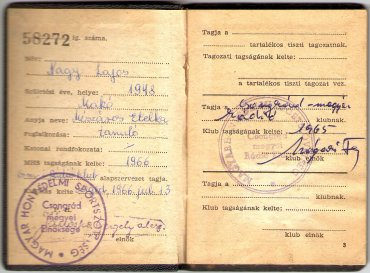 58272 ig. száma.
Név:
Nagy Lajos
Születési éve, helye: 1948
Makó
Anyja neve: Mészáros Etelka
Foglalkozása: tanuló
Katonai rendfokozata: —
MHS tagságának kelte: 1966
alapszervezet tagja.
1966 júl 13
elnök
MAGYAR HONVÉDELMI SPORTSZÖVETSÉG
Csongrád
megyei
Elnöksége
Tagja a
tartalékos tiszti tagozatnak.
Tagozati tagságának kelte:
a tartalékos tiszti tagozat vez.
Tagja a Csongrád-megyei
Rádió klubnak.
Klub tagságának kelte: 1965
klub elnök
Csongrád
megyei
Tagja a
klubnak.
Klub tagságának kelte:
klub elnök
3